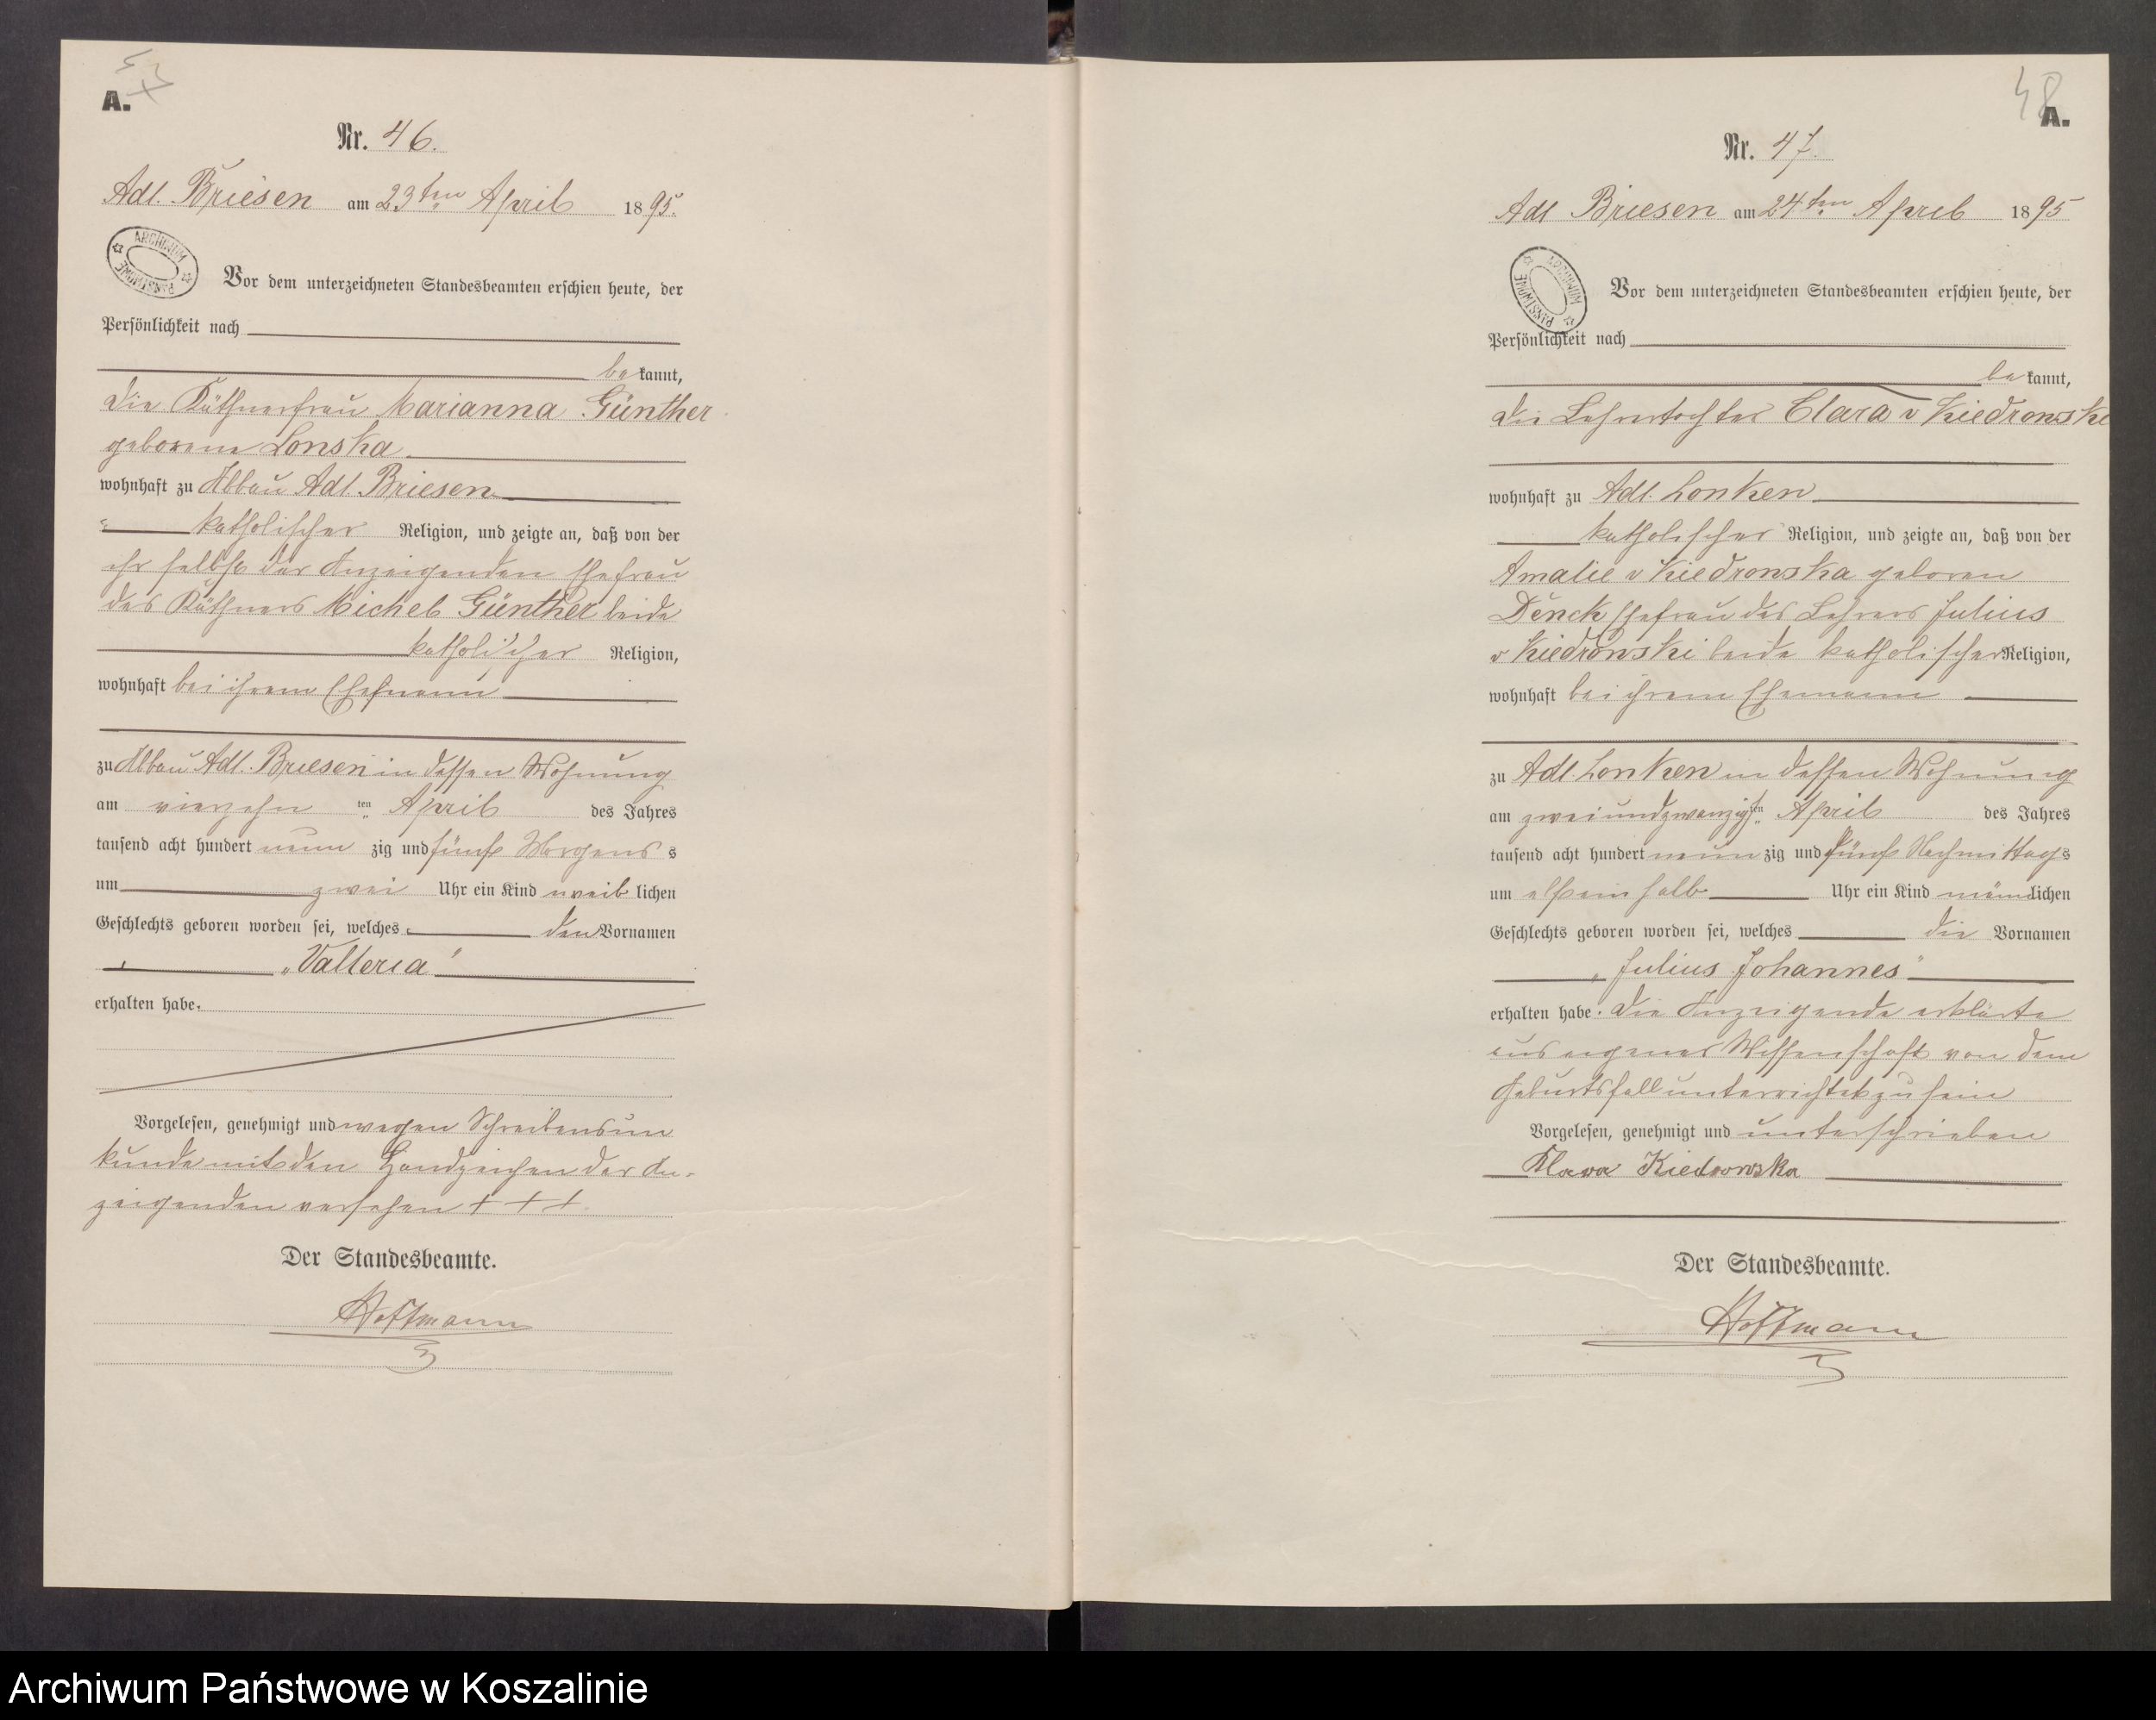 A.
Nr. 46.
Adl. Briesen am 23ten April 1895.
ARCHIWUM PAŃSTWOWE
Vor dem unterzeichneten Standesbeamten erschien heute, der
Persönlichkeit nach
bekannt,
die Käthnerfrau Marianna Günther
geborene Lonska
wohnhaft zu Abbau Adl. Briesen
katholischer Religion, und zeigte an, daß von der
ihr selbst der Anzeigenden Ehefrau
des Käthners Michel Günther beide
katholischer Religion,
wohnhaft bei ihrem Ehemann
zu Abbau Adl. Briesen in dessen Wohnung
am vierzehn ten April des Jahres
tausend acht hundert neun zig und fünf Morgens s
um zwei Uhr ein Kind weib lichen
Geschlechts geboren worden sei, welches den Vornamen
„Valleria“
erhalten habe.
Vorgelesen, genehmigt und wegen Schreibensun
kunde mit den Handzeichen der An-
zeigenden versehen + + +.
Der Standesbeamte.
Hoffmann
48
A.
Nr. 47.
Adl Briesen am 24ten April 1895
ARCHIWUM PAŃSTWOWE
Vor dem unterzeichneten Standesbeamten erschien heute, der
Persönlichkeit nach
bekannt,
die Lehrertochter Clara v Kiedrowski
wohnhaft zu Adl. Lonken
katholischer Religion, und zeigte an, daß von der
Amalie v Kiedrowska geboren
Denck Ehefrau des Lehrers Julius
v Kiedrowski beide katholischer Religion,
wohnhaft bei ihrem Ehemann
zu Adl. Lonken in dessen Wohnung
am zweiundzwanzigsten April des Jahres
tausend acht hundert neun zig und fünf Nachmittags
um elfeinhalb Uhr ein Kind männlichen
Geschlechts geboren worden sei, welches die Vornamen
„Julius Johannes“
erhalten habe. Die Anzeigende erklärte
aus eigener Wissenschaft von dem
Geburtsfall unterrichtet zu sein
Vorgelesen, genehmigt und unterschrieben
Klara Kiedrowska
Der Standesbeamte.
Hoffmann
Archiwum Państwowe w Koszalinie